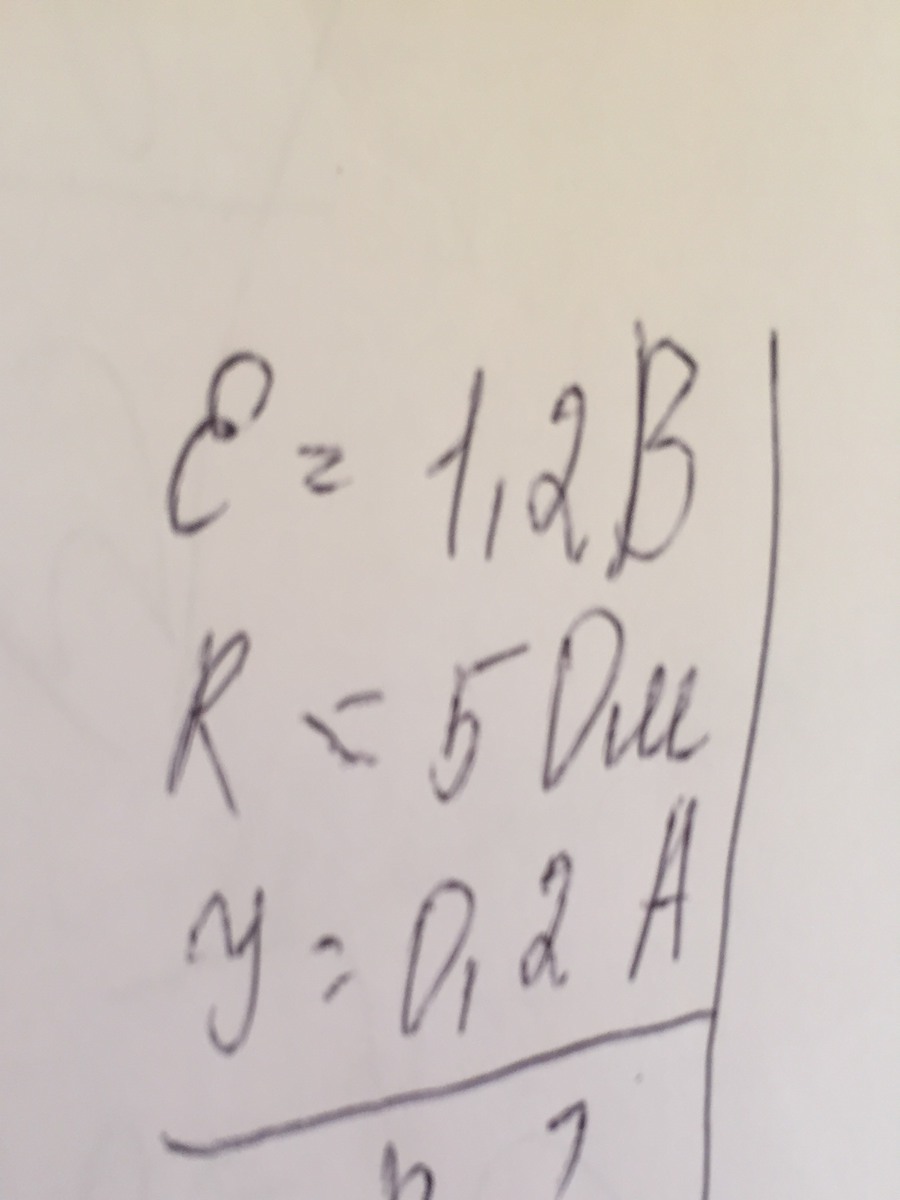 ℰ = 1,2 В
R = 5 Ом
У = 0,2 А